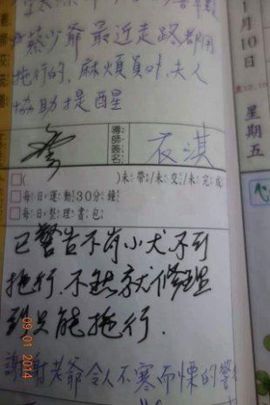 少爺最近走路都用
拖行的,麻煩員外、夫人
協助提醒
1月10日
星期五
導師簽名
衣淇
)未帶/未交/未完成
每日運動30分鐘
每日整理書包
已警告不肖小犬不可
拖行.不然就修理
到只能拖行.
謝謝老爺令人不寒而慄的警
09/01/2014